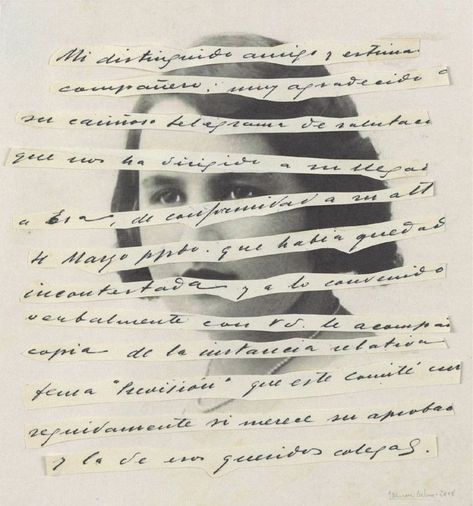 Mi distinguido amigo y estima
compañero: muy agradecido a
su cariñoso telegrama de salutac
que nos ha dirigido a su llegad
a Esa, de conformidad a su att
4 Marzo ppdo. que había quedad
incontestada y a lo convenido
verbalmente con Vd. le acompañ
copia de la instancia relativa
tema "Previsión" que este Comité
seguidamente si merece su aprobac
y la de esos queridos colegas.